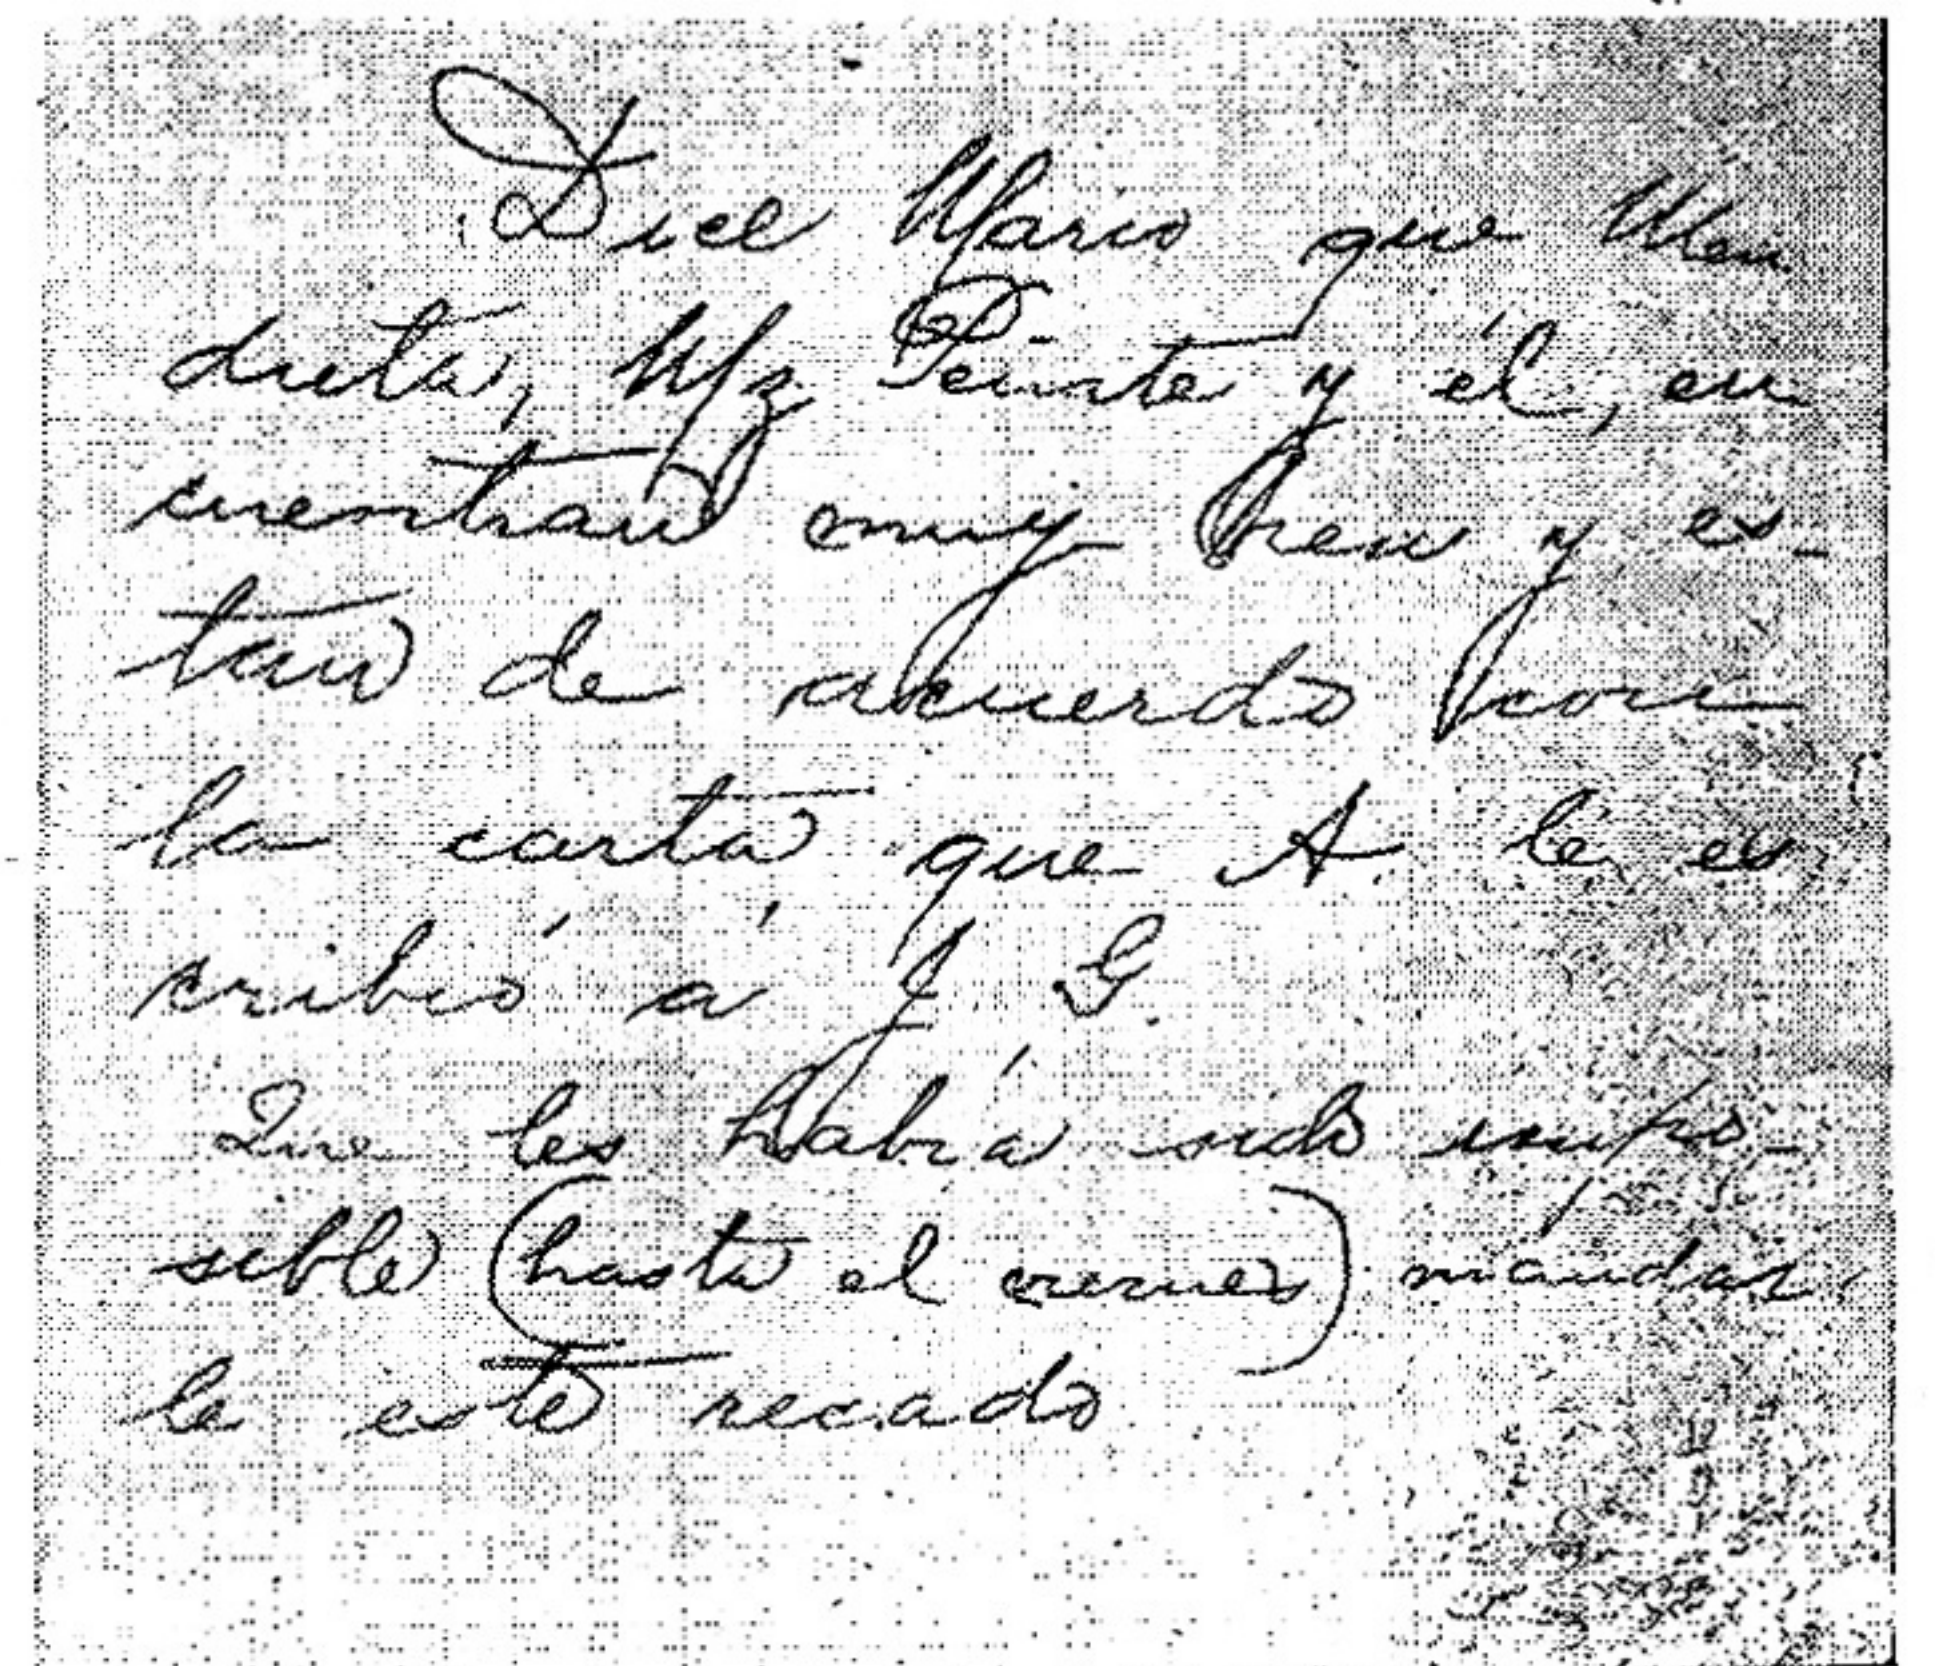 Dice Mario que Men
dieta, Mz Peinte y él, en
cuentran muy bien y es-
tan de acuerdo con
la carta que A. le es
cribió á J. G.
Que les habrá sido impo-
sible (hasta el viernes) mandar
le este recado